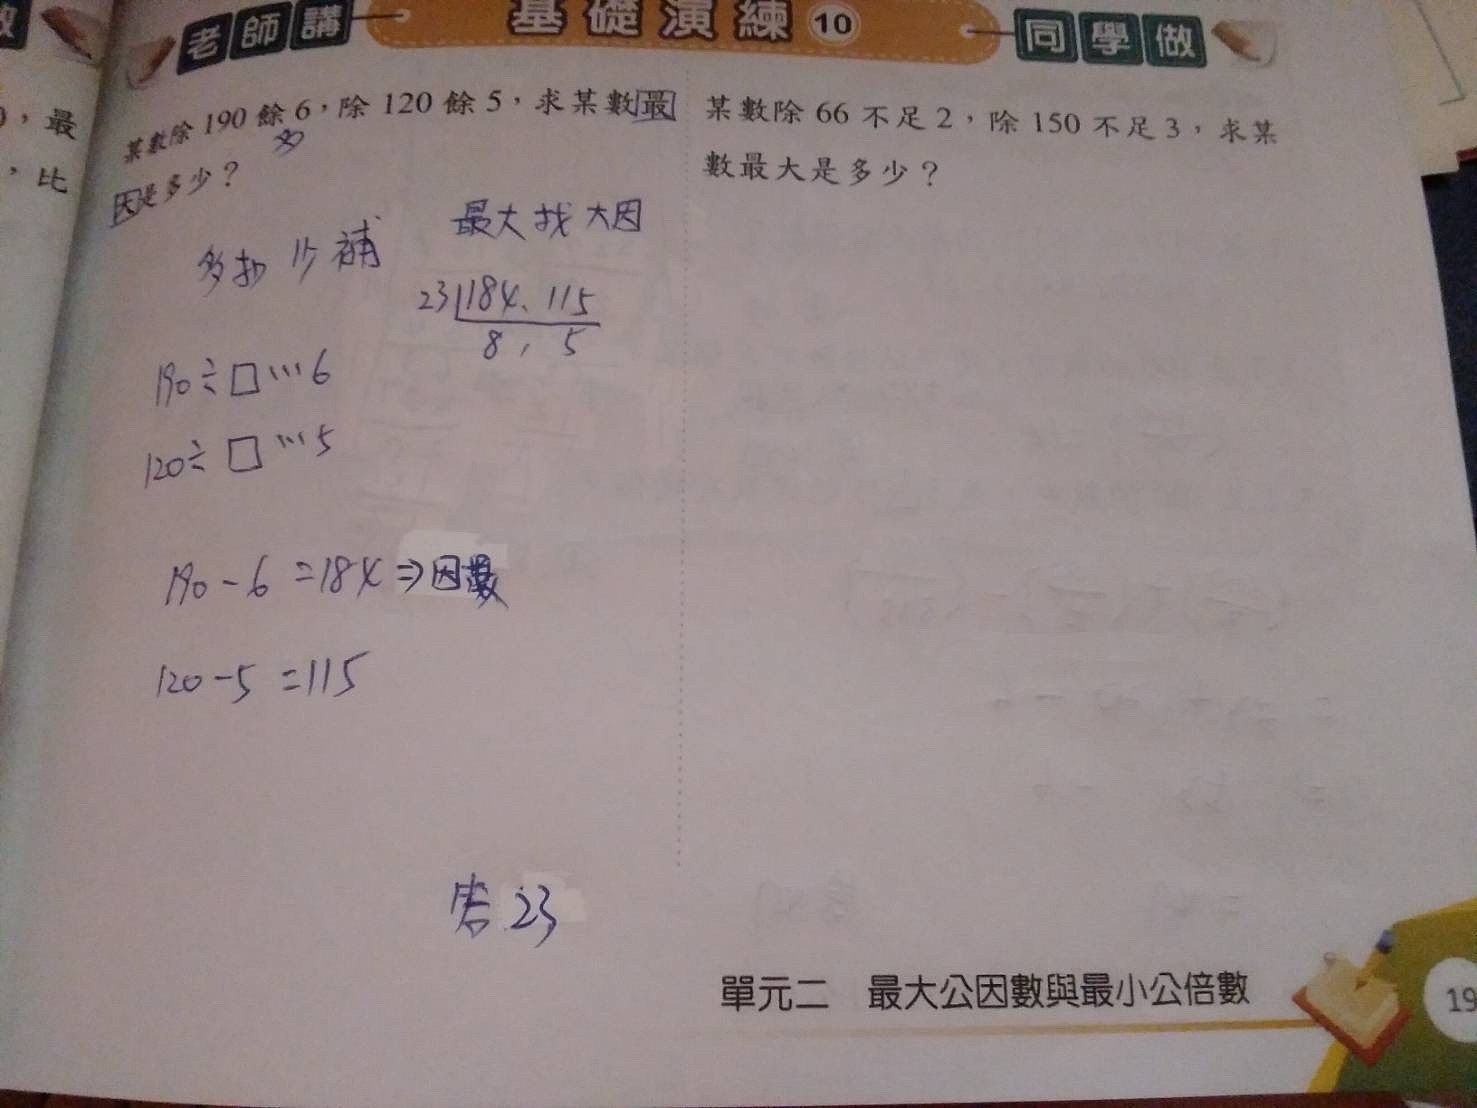 老師講 基礎演練 10 同學做
，最
，比
某數除 190 餘 6，除 120 餘 5，求某數最
多
因是多少？
多扣 少補
最大找大因
23 184、115
8, 5
190÷□…6
120÷□…5
190-6=184⇒因數
120-5=115
答:23
某數除 66 不足 2，除 150 不足 3，求某
數最大是多少？
單元二 最大公因數與最小公倍數
19